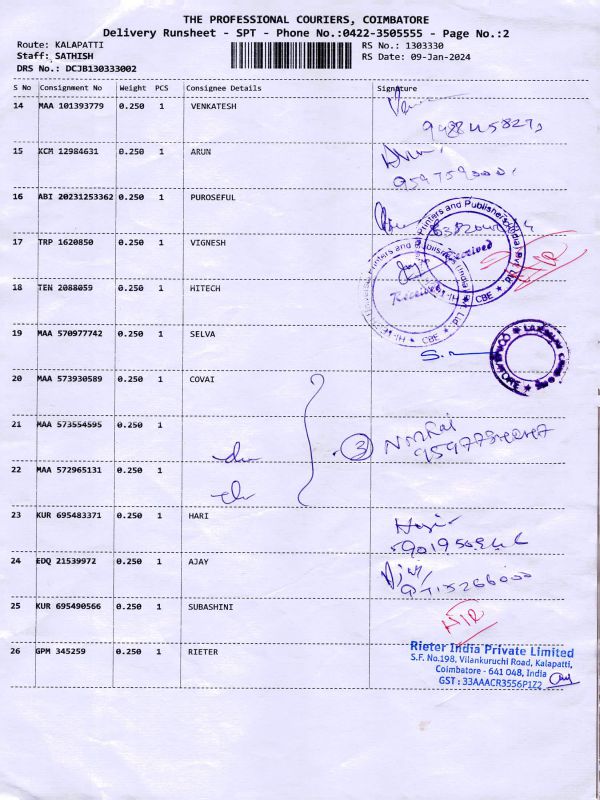 THE PROFESSIONAL COURIERS, COIMBATORE
Delivery Runsheet - SPT - Phone No.:0422-3505555 - Page No.:2
Route: KALAPATTI
Staff: SATHISH
DRS No.: DCJB130333002
RS No.: 1303330
RS Date: 09-Jan-2024
S No Consignment No Weight PCS Consignee Details Signature
14 MAA 101393779 0.250 1 VENKATESH
15 KCM 12984631 0.250 1 ARUN
16 ABI 20231253362 0.250 1 PUROSEFUL
17 TRP 1620850 0.250 1 VIGNESH
18 TEN 2088059 0.250 1 HITECH
Received
Received
19 MAA 570977742 0.250 1 SELVA
20 MAA 573930589 0.250 1 COVAI
21 MAA 573554595 0.250 1
3
22 MAA 572965131 0.250 1
23 KUR 695483371 0.250 1 HARI
24 EDQ 21539972 0.250 1 AJAY
25 KUR 695490566 0.250 1 SUBASHINI
26 GPM 345259 0.250 1 RIETER
Rieter India Private Limited
S.F. No.198, Vilankuruchi Road, Kalapatti,
Coimbatore - 641 048, India
GST : 33AAACR3556P1Z2